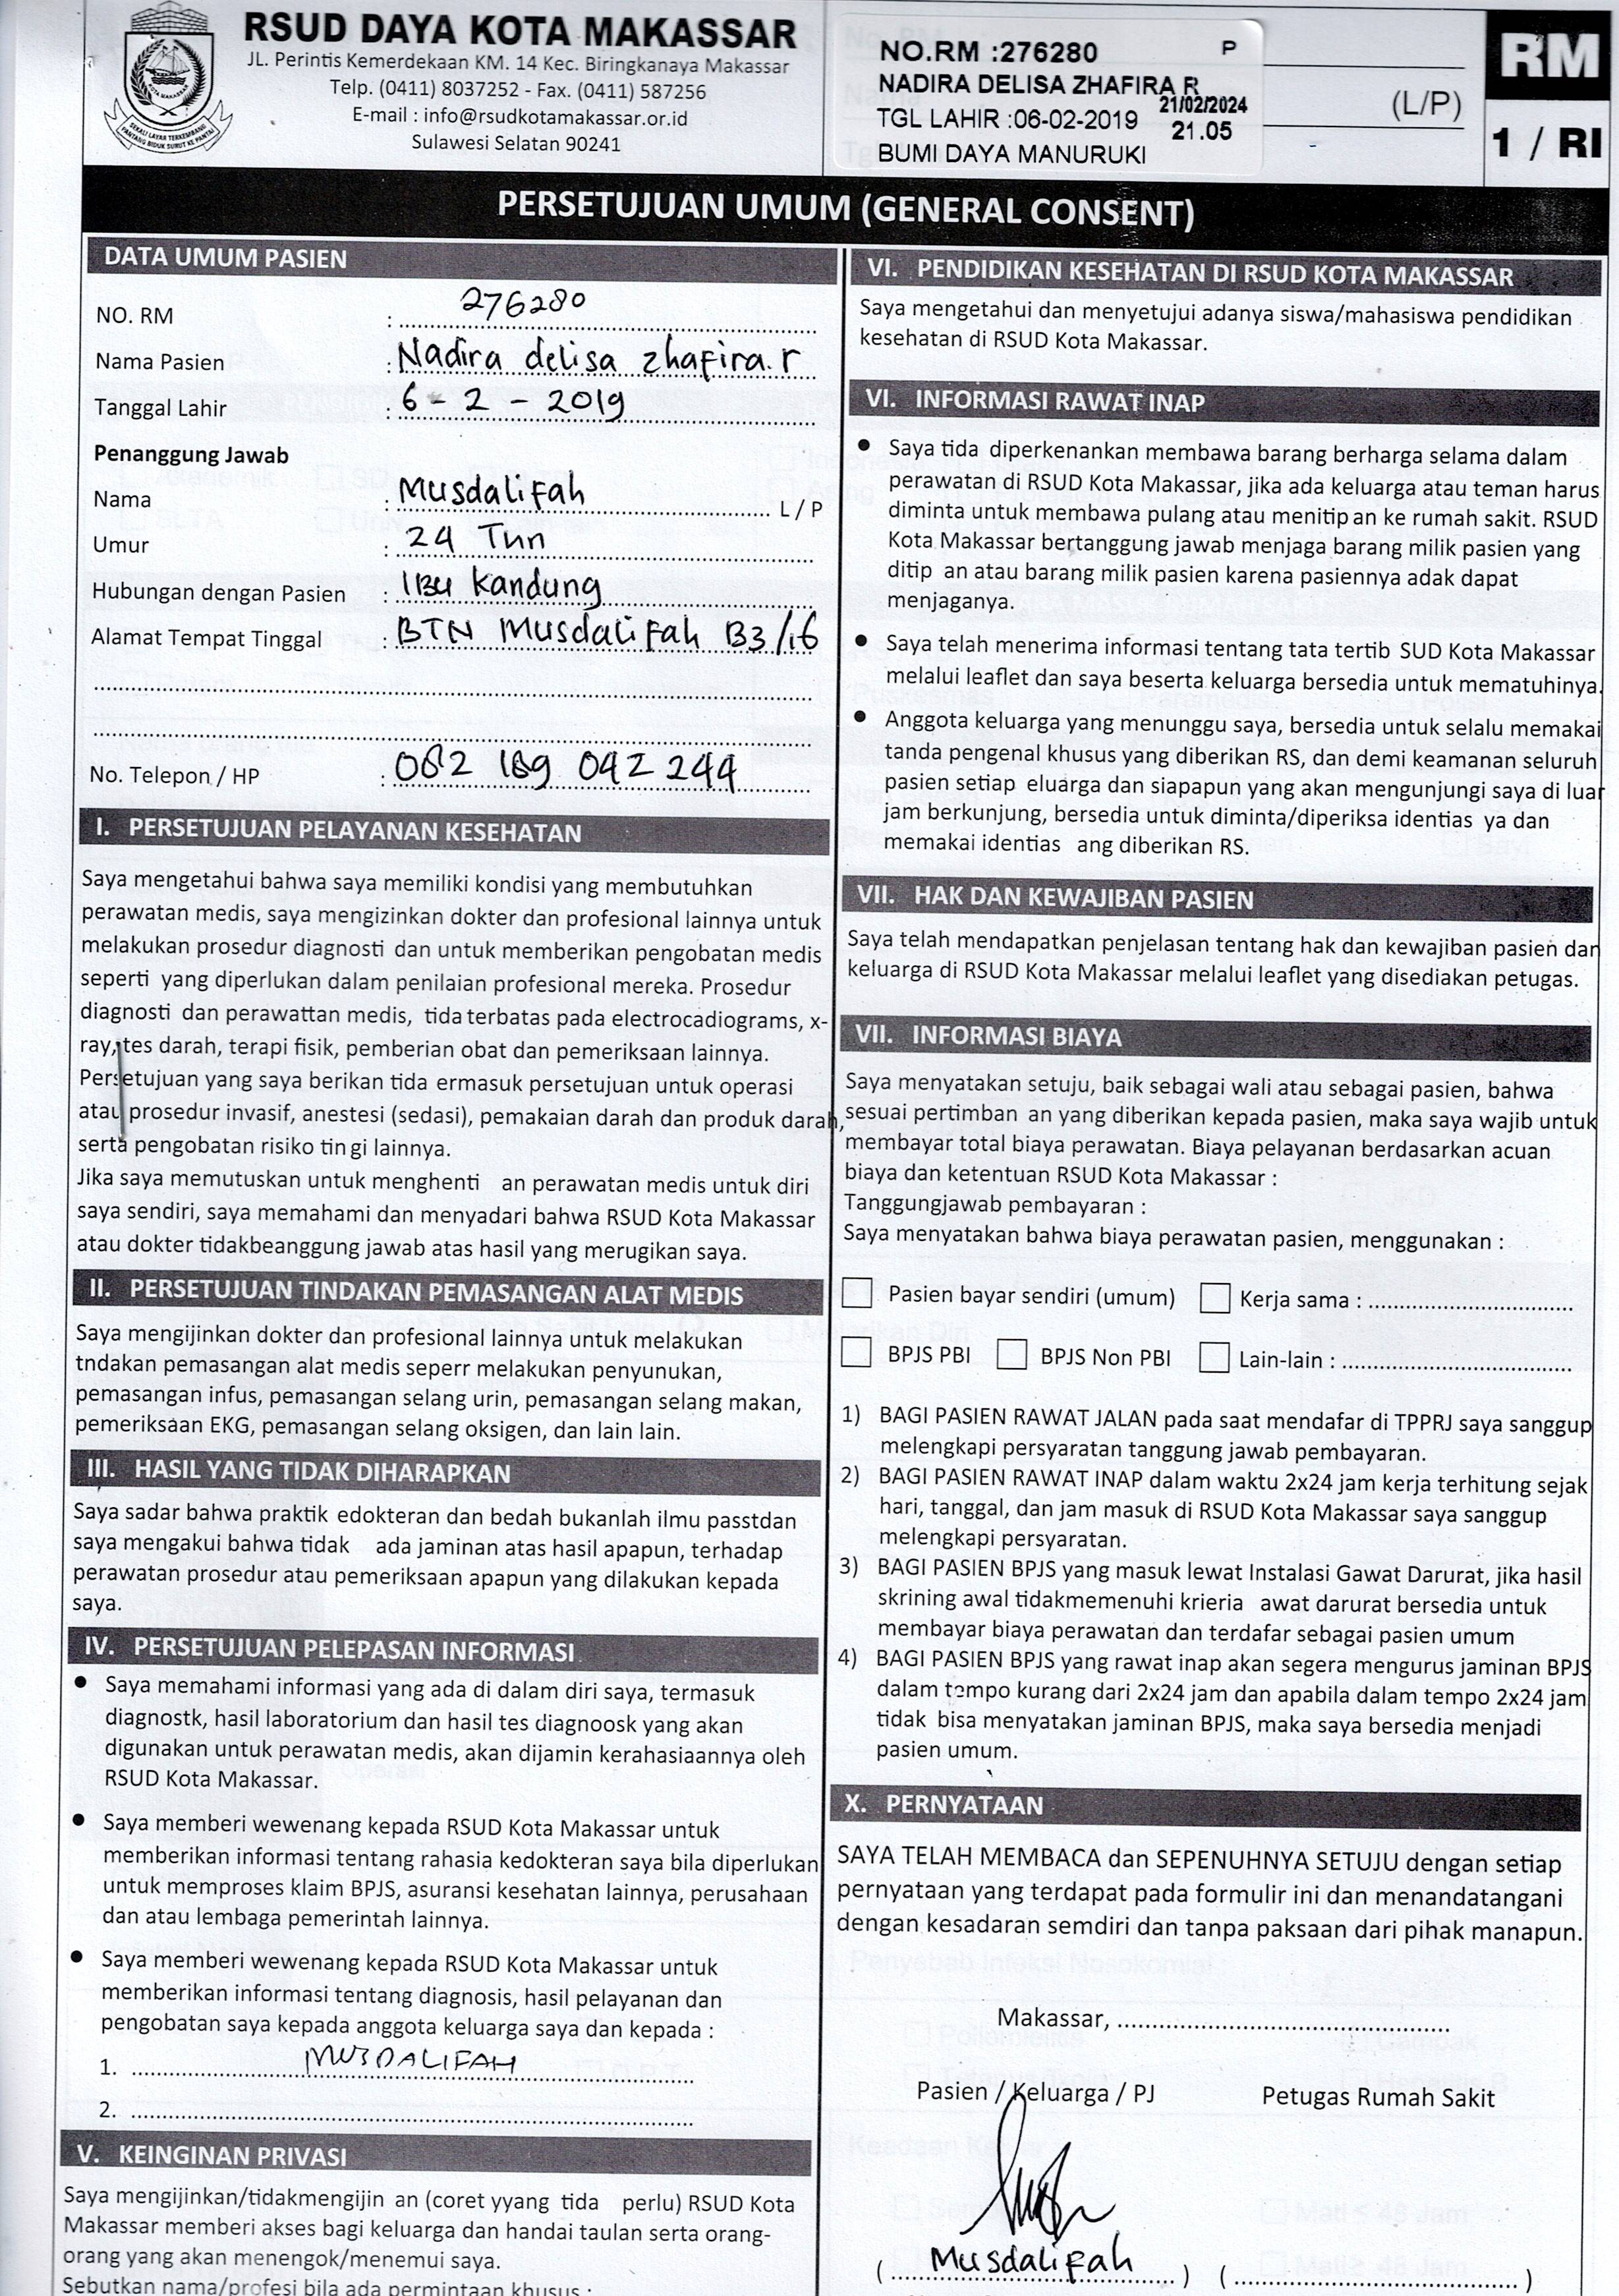 RSUD DAYA KOTA MAKASSAR
JL. Perintis Kemerdekaan KM. 14 Kec. Biringkanaya Makassar
Telp. (0411) 8037252 - Fax. (0411) 587256
E-mail : info@rsudkotamakassar.or.id
Sulawesi Selatan 90241
NO.RM :276280 P
NADIRA DELISA ZHAFIRA R
TGL LAHIR :06-02-2019 21/02/2024
21.05
BUMI DAYA MANURUKI
(L/P)
RM
1 / RI
PERSETUJUAN UMUM (GENERAL CONSENT)
DATA UMUM PASIEN
NO. RM : 276280
Nama Pasien : Nadira delisa zhafira.r
Tanggal Lahir : 6 - 2 - 2019
Penanggung Jawab
Nama : Musdalifah L / P
Umur : 24 Thn
Hubungan dengan Pasien : IBu Kandung
Alamat Tempat Tinggal : BTN Musdalifah B3/16
No. Telepon / HP : 082 189 042 244
I. PERSETUJUAN PELAYANAN KESEHATAN
Saya mengetahui bahwa saya memiliki kondisi yang membutuhkan
perawatan medis, saya mengizinkan dokter dan profesional lainnya untuk
melakukan prosedur diagnosti dan untuk memberikan pengobatan medis
seperti yang diperlukan dalam penilaian profesional mereka. Prosedur
diagnosti dan perawattan medis, tida terbatas pada electrocadiograms, x-
ray, tes darah, terapi fisik, pemberian obat dan pemeriksaan lainnya.
Persetujuan yang saya berikan tida ermasuk persetujuan untuk operasi
atau prosedur invasif, anestesi (sedasi), pemakaian darah dan produk darah,
serta pengobatan risiko tin gi lainnya.
Jika saya memutuskan untuk menghenti an perawatan medis untuk diri
saya sendiri, saya memahami dan menyadari bahwa RSUD Kota Makassar
atau dokter tidakbeanggung jawab atas hasil yang merugikan saya.
II. PERSETUJUAN TINDAKAN PEMASANGAN ALAT MEDIS
Saya mengijinkan dokter dan profesional lainnya untuk melakukan
tndakan pemasangan alat medis seperr melakukan penyunukan,
pemasangan infus, pemasangan selang urin, pemasangan selang makan,
pemeriksaan EKG, pemasangan selang oksigen, dan lain lain.
III. HASIL YANG TIDAK DIHARAPKAN
Saya sadar bahwa praktik edokteran dan bedah bukanlah ilmu passtdan
saya mengakui bahwa tidak ada jaminan atas hasil apapun, terhadap
perawatan prosedur atau pemeriksaan apapun yang dilakukan kepada
saya.
IV. PERSETUJUAN PELEPASAN INFORMASI
• Saya memahami informasi yang ada di dalam diri saya, termasuk
diagnostk, hasil laboratorium dan hasil tes diagnoosk yang akan
digunakan untuk perawatan medis, akan dijamin kerahasiaannya oleh
RSUD Kota Makassar.
• Saya memberi wewenang kepada RSUD Kota Makassar untuk
memberikan informasi tentang rahasia kedokteran saya bila diperlukan
untuk memproses klaim BPJS, asuransi kesehatan lainnya, perusahaan
dan atau lembaga pemerintah lainnya.
• Saya memberi wewenang kepada RSUD Kota Makassar untuk
memberikan informasi tentang diagnosis, hasil pelayanan dan
pengobatan saya kepada anggota keluarga saya dan kepada :
1. MUSDALIFAH
2.
V. KEINGINAN PRIVASI
Saya mengijinkan/tidakmengijin an (coret yyang tida perlu) RSUD Kota
Makassar memberi akses bagi keluarga dan handai taulan serta orang-
orang yang akan menengok/menemui saya.
Sebutkan nama/profesi bila ada permintaan khusus :
VI. PENDIDIKAN KESEHATAN DI RSUD KOTA MAKASSAR
Saya mengetahui dan menyetujui adanya siswa/mahasiswa pendidikan
kesehatan di RSUD Kota Makassar.
VI. INFORMASI RAWAT INAP
• Saya tida diperkenankan membawa barang berharga selama dalam
perawatan di RSUD Kota Makassar, jika ada keluarga atau teman harus
diminta untuk membawa pulang atau menitip an ke rumah sakit. RSUD
Kota Makassar bertanggung jawab menjaga barang milik pasien yang
ditip an atau barang milik pasien karena pasiennya adak dapat
menjaganya.
• Saya telah menerima informasi tentang tata tertib SUD Kota Makassar
melalui leaflet dan saya beserta keluarga bersedia untuk mematuhinya.
• Anggota keluarga yang menunggu saya, bersedia untuk selalu memakai
tanda pengenal khusus yang diberikan RS, dan demi keamanan seluruh
pasien setiap eluarga dan siapapun yang akan mengunjungi saya di luar
jam berkunjung, bersedia untuk diminta/diperiksa identias ya dan
memakai identias ang diberikan RS.
VII. HAK DAN KEWAJIBAN PASIEN
Saya telah mendapatkan penjelasan tentang hak dan kewajiban pasien dan
keluarga di RSUD Kota Makassar melalui leaflet yang disediakan petugas.
VII. INFORMASI BIAYA
Saya menyatakan setuju, baik sebagai wali atau sebagai pasien, bahwa
sesuai pertimban an yang diberikan kepada pasien, maka saya wajib untuk
membayar total biaya perawatan. Biaya pelayanan berdasarkan acuan
biaya dan ketentuan RSUD Kota Makassar :
Tanggungjawab pembayaran :
Saya menyatakan bahwa biaya perawatan pasien, menggunakan :
Pasien bayar sendiri (umum) Kerja sama :
BPJS PBI BPJS Non PBI Lain-lain :
1) BAGI PASIEN RAWAT JALAN pada saat mendafar di TPPRJ saya sanggup
melengkapi persyaratan tanggung jawab pembayaran.
2) BAGI PASIEN RAWAT INAP dalam waktu 2x24 jam kerja terhitung sejak
hari, tanggal, dan jam masuk di RSUD Kota Makassar saya sanggup
melengkapi persyaratan.
3) BAGI PASIEN BPJS yang masuk lewat Instalasi Gawat Darurat, jika hasil
skrining awal tidakmemenuhi krieria awat darurat bersedia untuk
membayar biaya perawatan dan terdafar sebagai pasien umum
4) BAGI PASIEN BPJS yang rawat inap akan segera mengurus jaminan BPJS
dalam tempo kurang dari 2x24 jam dan apabila dalam tempo 2x24 jam
tidak bisa menyatakan jaminan BPJS, maka saya bersedia menjadi
pasien umum.
X. PERNYATAAN
SAYA TELAH MEMBACA dan SEPENUHNYA SETUJU dengan setiap
pernyataan yang terdapat pada formulir ini dan menandatangani
dengan kesadaran semdiri dan tanpa paksaan dari pihak manapun.
Makassar,
Pasien / Keluarga / PJ Petugas Rumah Sakit
( Musdalifah ) ( )